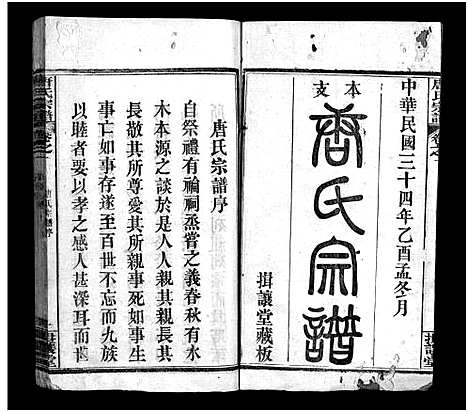 中華民國三十四年乙酉孟冬月
本支
唐氏宗譜
揖讓堂藏板
唐氏宗譜
唐氏宗譜序
自祭禮有禴祠烝嘗之義春秋有水
木本源之談於是人人親其親長其
長敬其所尊愛其所親事死如事生
事亡如事存遂至百世不忘而九族
以睦者要以孝之感人甚深耳而世
唐氏宗譜
揖讓堂